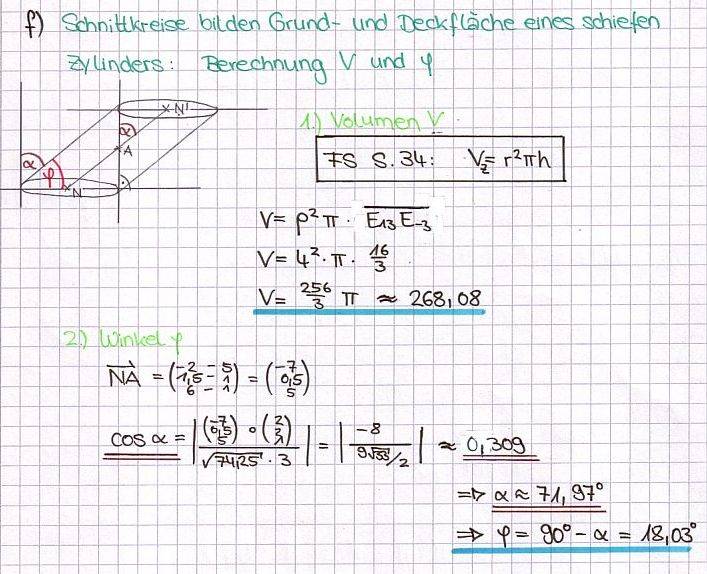 f) Schnittkreise bilden Grund- und Deckfläche eines schiefen
Zylinders: Berechnung V und φ
N'
α
A
α
φ
N
1.) Volumen V
FS S.34: V_Z = r²πh
V = ρ²π · E₁₃E₋₃
V = 4² · π · 16/3
V = 256/3 π ≈ 268,08
2.) Winkel φ
NA = (-2 - 5 / 1,5 - 1 / 6 - 1) = (-7 / 0,5 / 5)
cos α = |(-7 / 0,5 / 5) ∘ (2 / 2 / 1) / √74,25 · 3| = |-8 / 9√33/2| ≈ 0,309
⇒ α ≈ 71,97°
⇒ φ = 90° - α = 18,03°